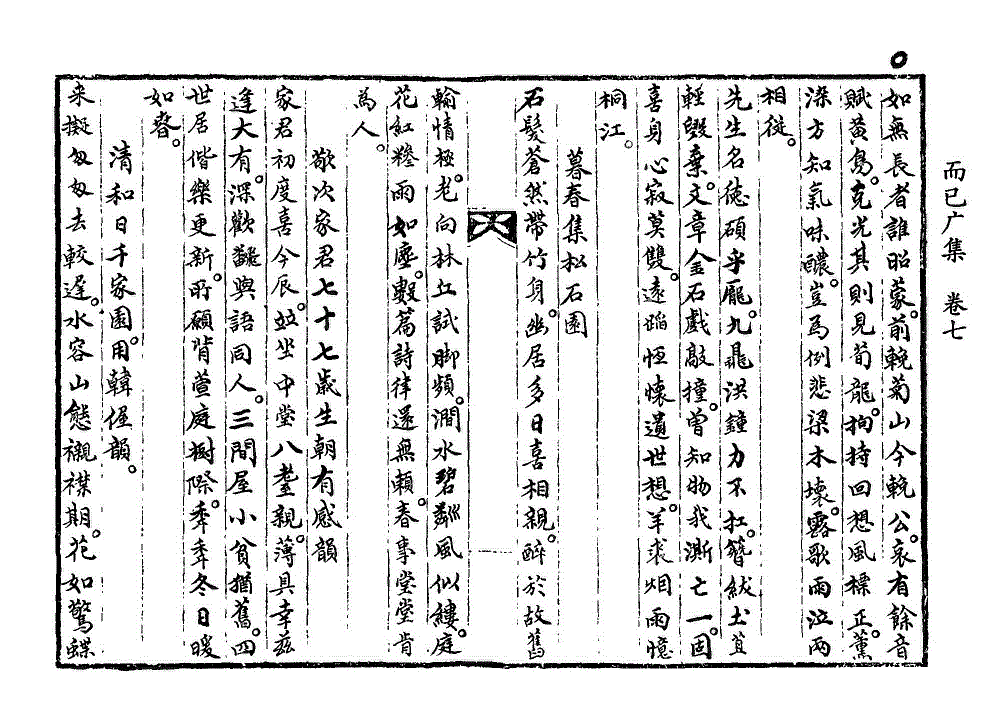 而已广集　卷七
如無長者誰昭蒙。前輓菊山今輓公。哀有餘音
賦黃鳥。克光其則見荀龍。拘持回想風標正。薰
染方知氣味醲。豈爲例悲梁木壞。露歌雨泣兩
相從。
先生名德碩乎龐。九鼎洪鐘力不扛。簪紱土苴
輕毀棄。文章金石戲敲撞。曾知物我澌亡一。固
喜身心寂莫雙。遠蹈恒懷遺世想。羊裘烟雨憶
桐江。
暮春集松石園
石髮蒼然帶竹身。幽居多日喜相親。醉於故舊
輸情極。老向林丘試脚頻。澗水碧㵎風似縷。庭
花紅糝雨如塵。數篇詩律還無賴。春事堂堂肯
為人。
敬次家君七十七歲生朝有感韻
家君初度喜今辰。並坐中堂八耋親。薄具幸茲
逢大有。深歡繇與語同人。三間屋小貧猶舊。四
世居偕樂更新。所願背萱庭樹際。年年冬日暖
如春。
清和日千家園。用韓偓韻。
来擬匆匆去較遲。水容山態襯襟期。花如驚蝶